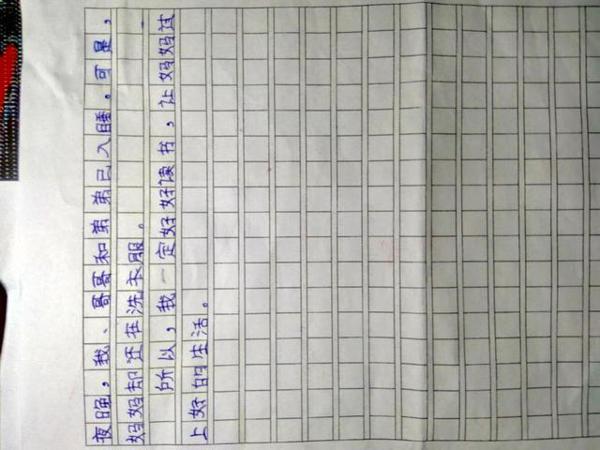 夜晚，我、哥哥和弟弟已入睡。可是，
妈妈却还在洗衣服。
所以，我一定好好读书，让妈妈过
上好的生活。